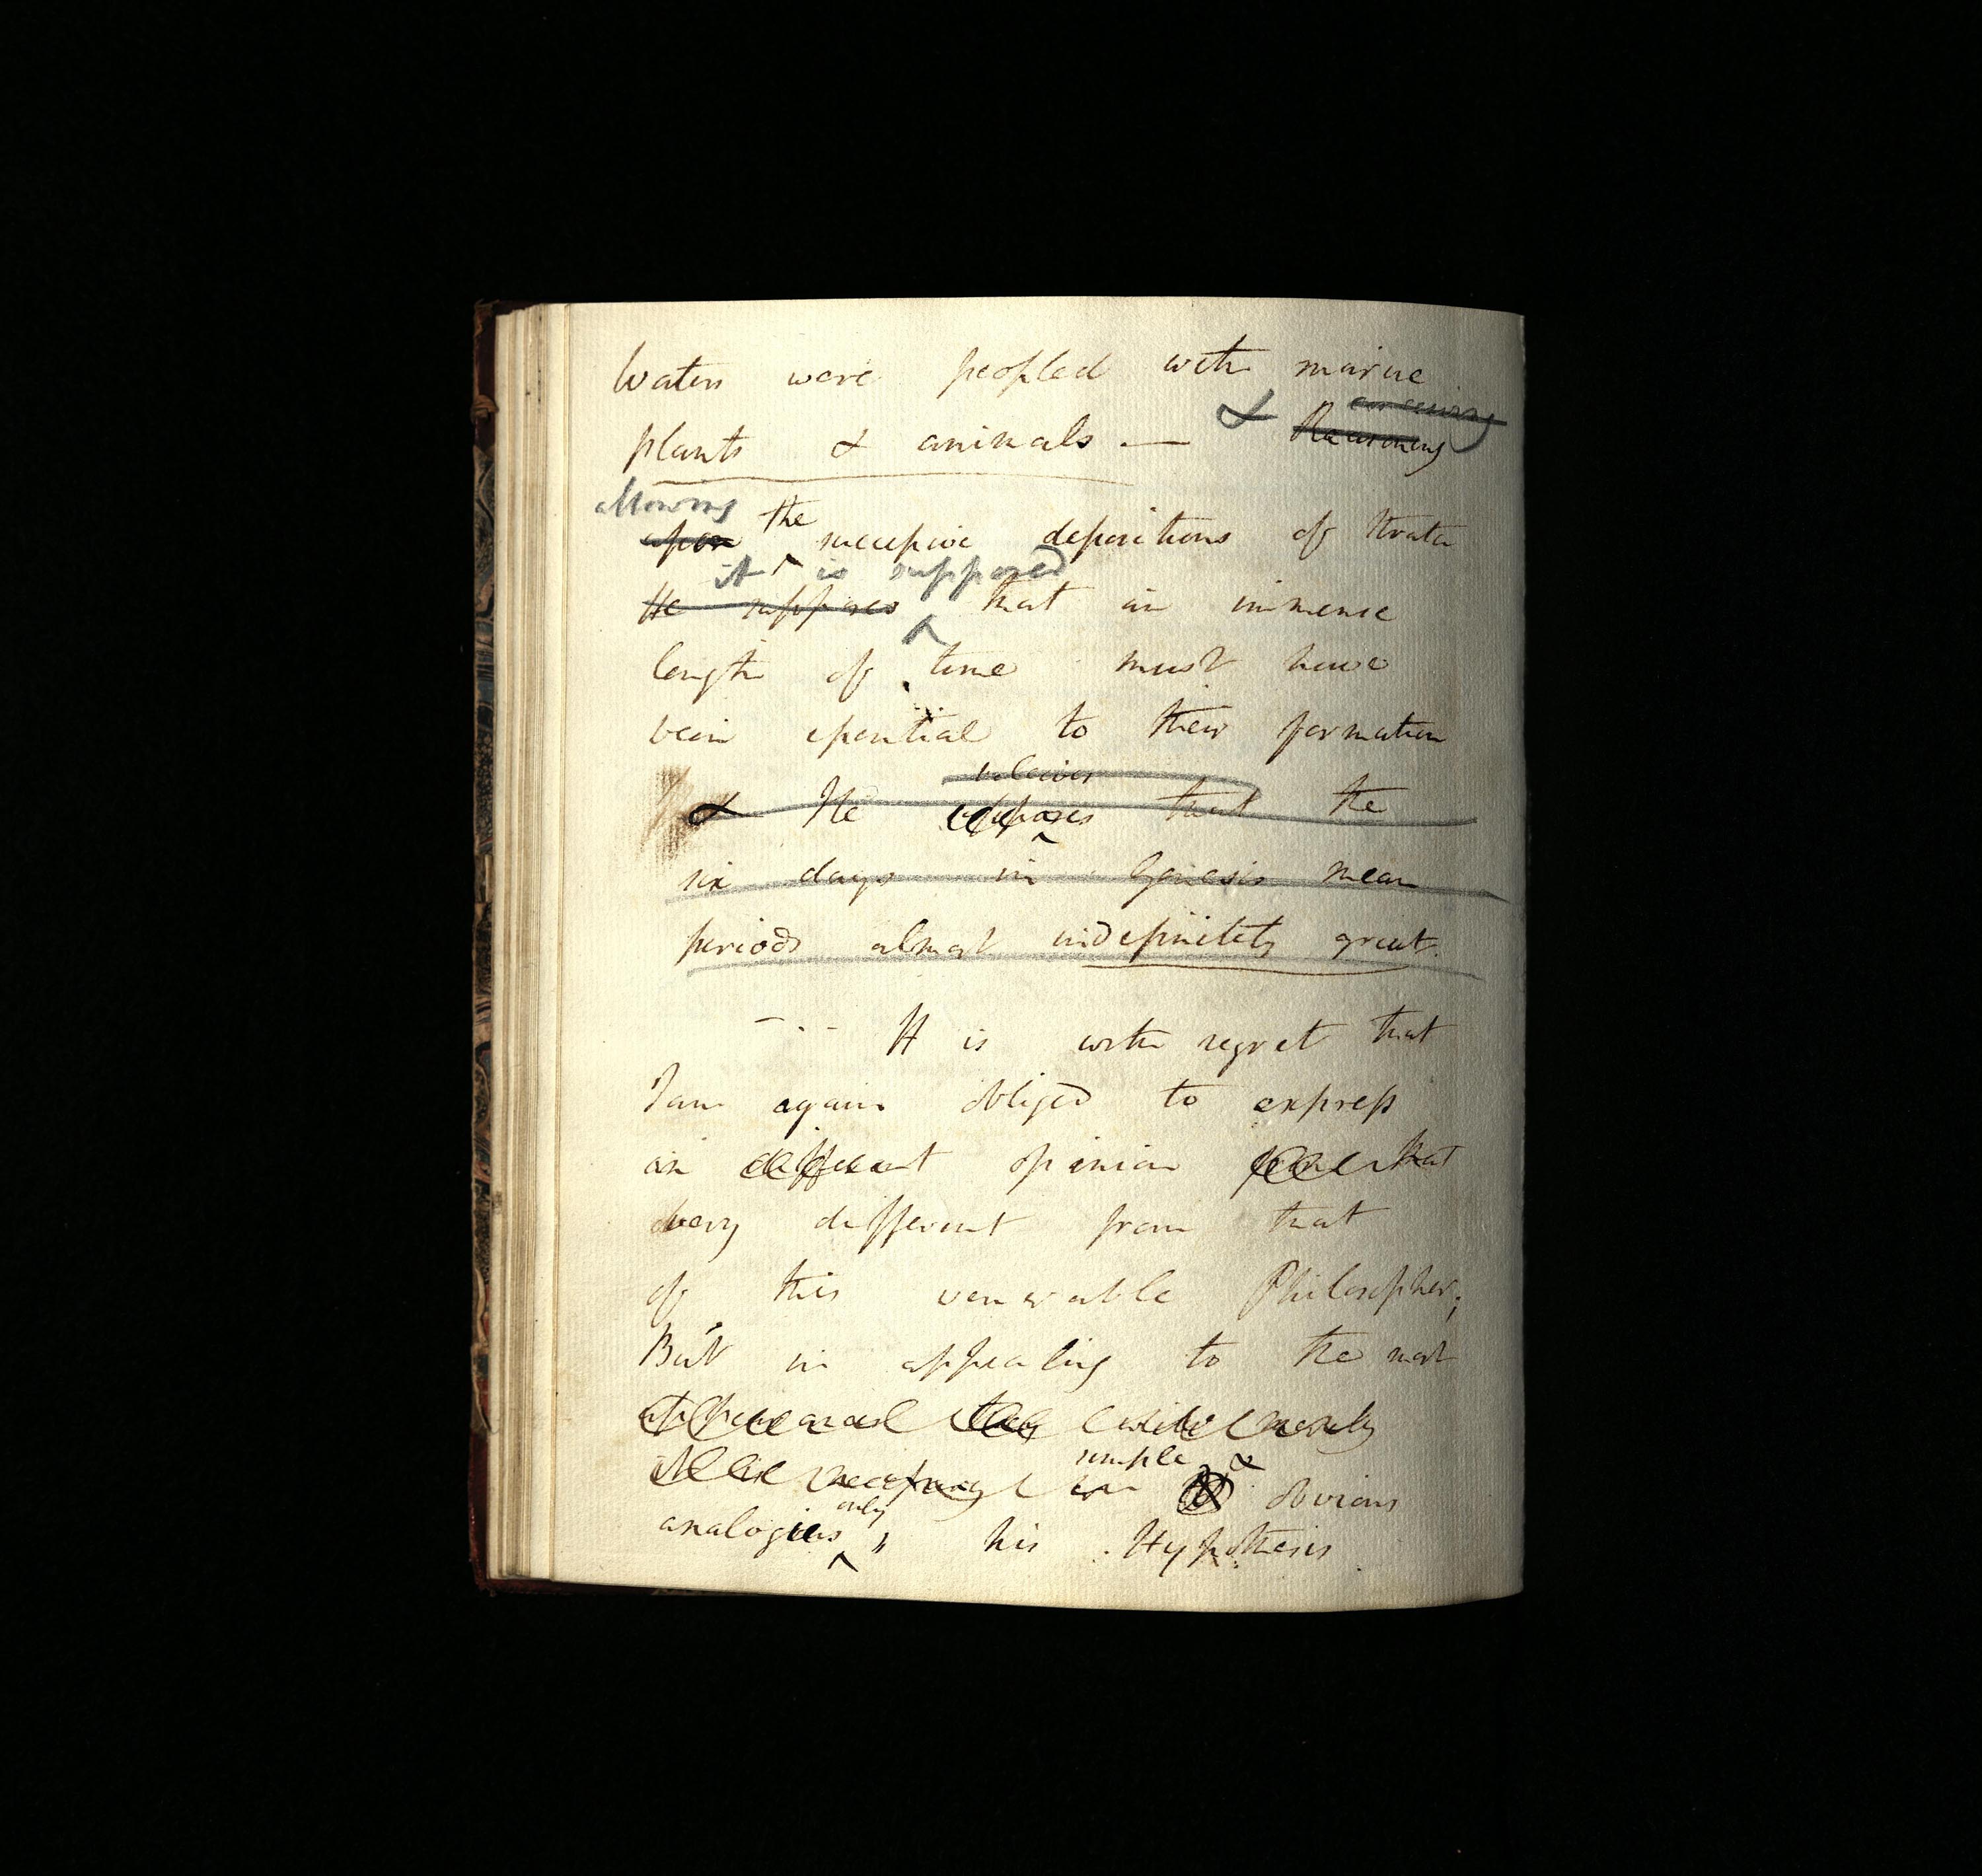 Waters were peopled with marine
plants & animals. — & Reasoning conceiving
allowing upon the successive depositions of strata
He supposes it is supposed that an immense
length of time must have
been essential to their formation
& He supposes believes that the
six days in Genesis mean
periods almost indefinitely great.
- - - It is with regret that
I am again obliged to express
an different opinion from that
very different from that
of this venerable Philosopher;
But in appealing to the most
merely
necessary simple & obvious
analogies only his Hypothesis